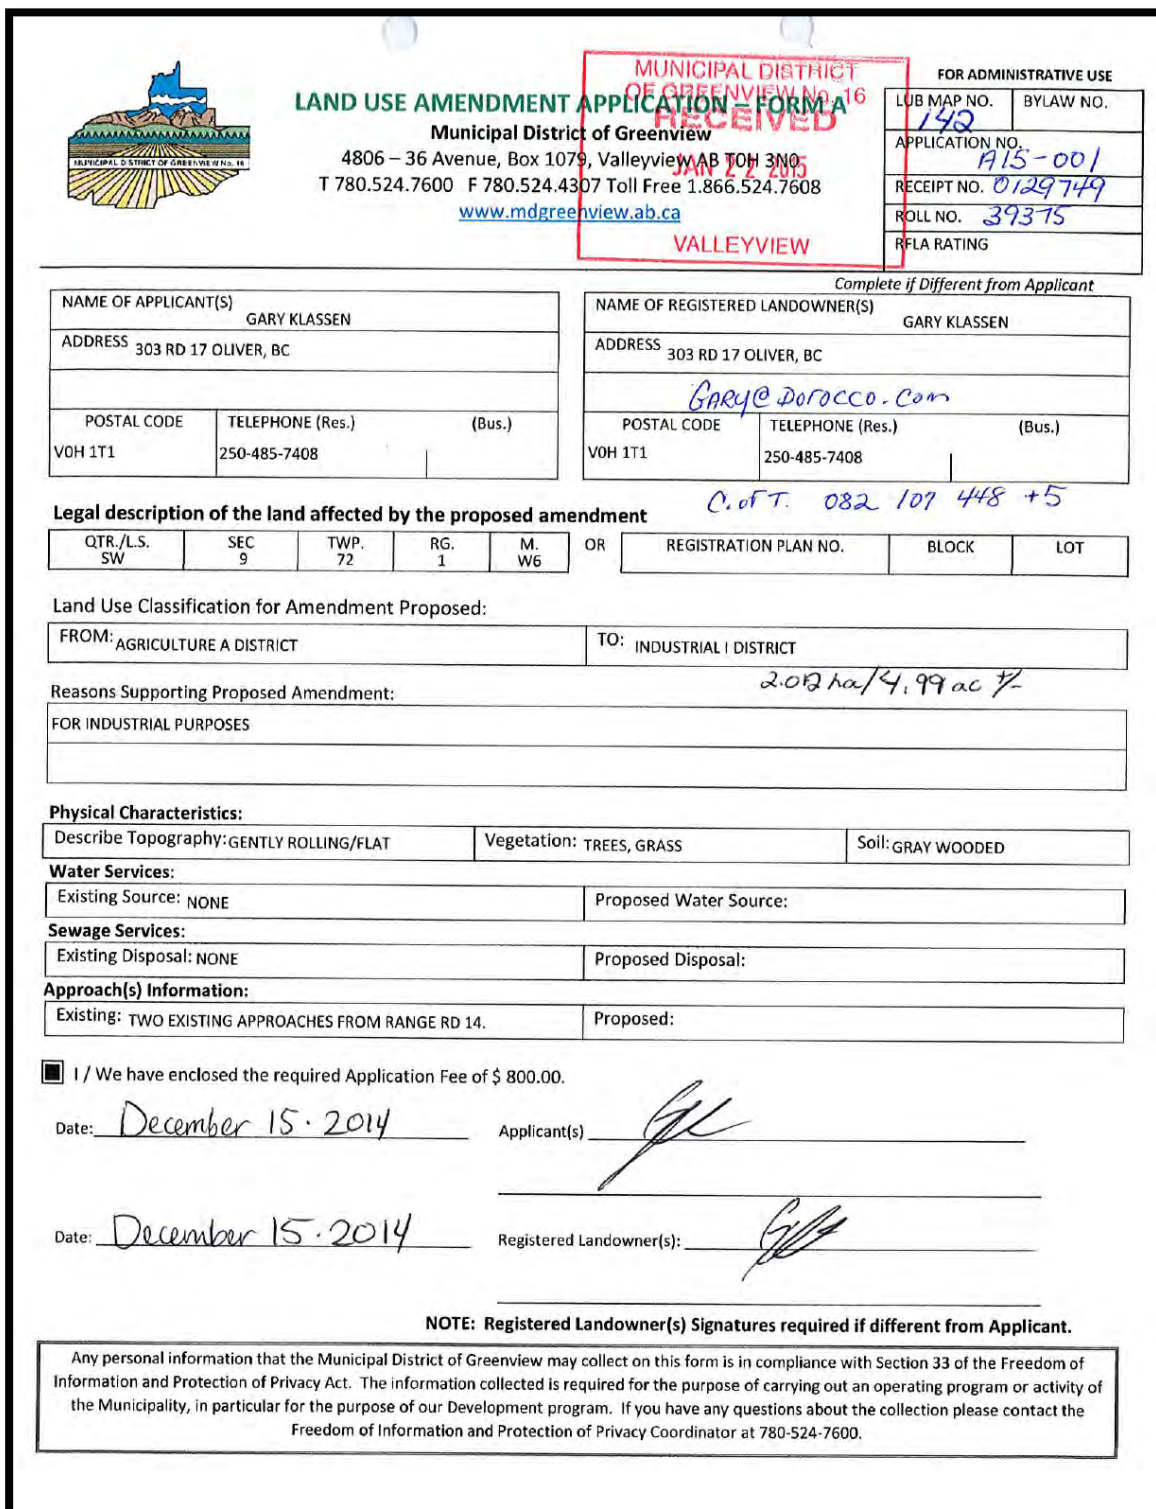 MUNICIPAL DISTRICT OF GREENVIEW No. 16
LAND USE AMENDMENT APPLICATION – FORM A
Municipal District of Greenview
4806 – 36 Avenue, Box 1079, Valleyview AB T0H 3N0
T 780.524.7600 F 780.524.4307 Toll Free 1.866.524.7608
www.mdgreenview.ab.ca
MUNICIPAL DISTRICT
OF GREENVIEW No. 16
RECEIVED
JAN 22 2015
VALLEYVIEW
FOR ADMINISTRATIVE USE
LUB MAP NO. 142 BYLAW NO.
APPLICATION NO. A15-001
RECEIPT NO. 0129749
ROLL NO. 39375
RFLA RATING
Complete if Different from Applicant
NAME OF APPLICANT(S) GARY KLASSEN
ADDRESS 303 RD 17 OLIVER, BC
POSTAL CODE TELEPHONE (Res.) (Bus.)
V0H 1T1 250-485-7408
NAME OF REGISTERED LANDOWNER(S) GARY KLASSEN
ADDRESS 303 RD 17 OLIVER, BC
GARY@DOROCCO.COM
POSTAL CODE TELEPHONE (Res.) (Bus.)
V0H 1T1 250-485-7408
C. of T. 082 107 448 +5
Legal description of the land affected by the proposed amendment
QTR./L.S. SEC TWP. RG. M. OR REGISTRATION PLAN NO. BLOCK LOT
SW 9 72 1 W6
Land Use Classification for Amendment Proposed:
FROM: AGRICULTURE A DISTRICT TO: INDUSTRIAL I DISTRICT
2.012 ha/4.99 ac +/-
Reasons Supporting Proposed Amendment:
FOR INDUSTRIAL PURPOSES
Physical Characteristics:
Describe Topography: GENTLY ROLLING/FLAT Vegetation: TREES, GRASS Soil: GRAY WOODED
Water Services:
Existing Source: NONE Proposed Water Source:
Sewage Services:
Existing Disposal: NONE Proposed Disposal:
Approach(s) Information:
Existing: TWO EXISTING APPROACHES FROM RANGE RD 14. Proposed:
I / We have enclosed the required Application Fee of $ 800.00.
Date: December 15. 2014 Applicant(s)
Date: December 15. 2014 Registered Landowner(s):
NOTE: Registered Landowner(s) Signatures required if different from Applicant.
Any personal information that the Municipal District of Greenview may collect on this form is in compliance with Section 33 of the Freedom of
Information and Protection of Privacy Act. The information collected is required for the purpose of carrying out an operating program or activity of
the Municipality, in particular for the purpose of our Development program. If you have any questions about the collection please contact the
Freedom of Information and Protection of Privacy Coordinator at 780-524-7600.